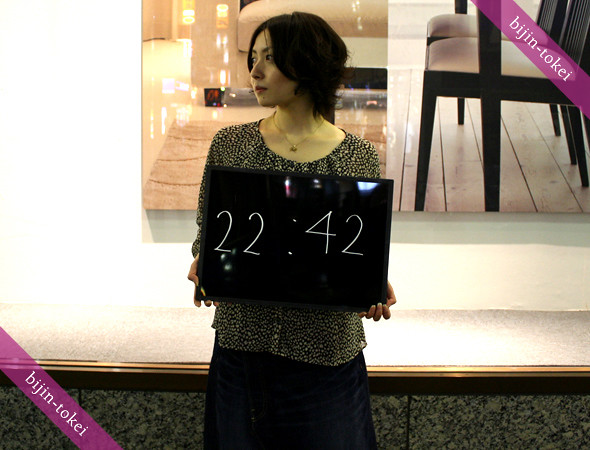 bijin-tokei
22:42
bijin-tokei